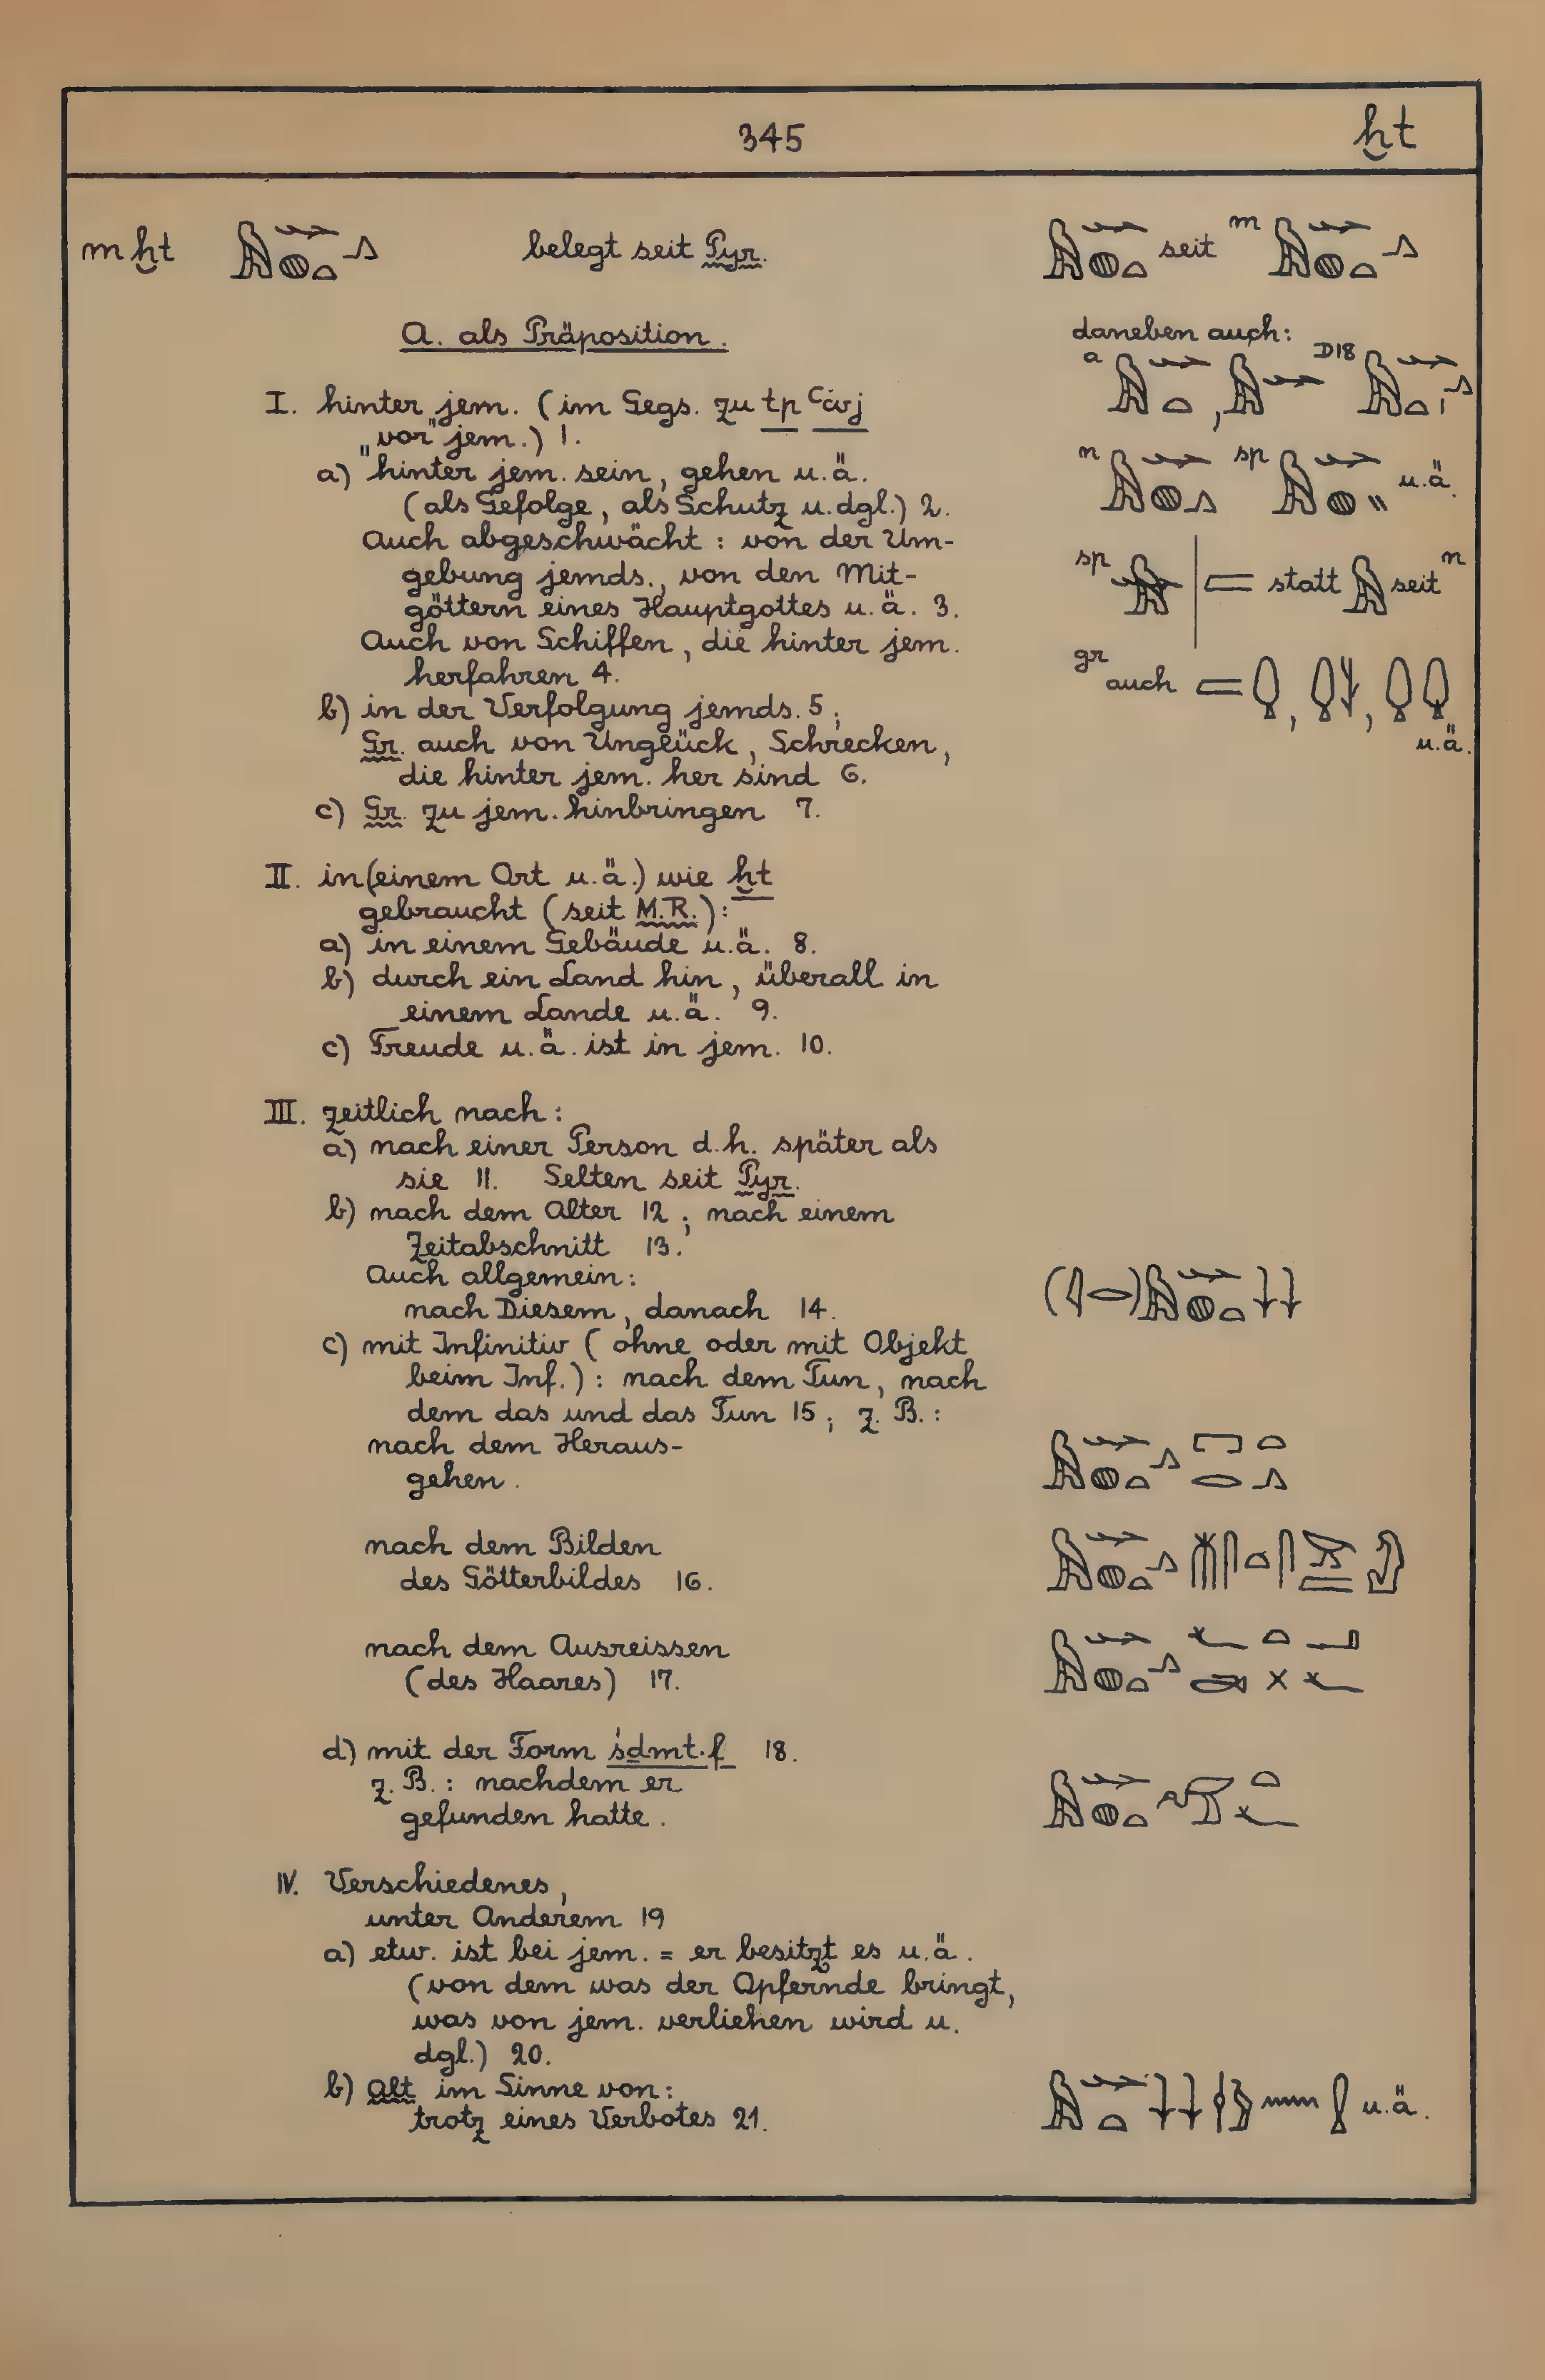 345 ḫt
m ḫt 𓅓𓆱𓐍𓏏𓂻 belegt seit Pyr. 𓅓𓆱𓐍𓏏 seit m 𓅓𓆱𓐍𓏏𓂻
A. als Präposition.
daneben auch:
a D18
I. hinter jem. (im Gegs. zu tp ꜥwj
„vor" jem.) 1.
a) hinter jem. sein, gehen u.ä.
n sp u.ä.
(als Gefolge, als Schutz u.dgl.) 2.
Auch abgeschwächt: von der Um-
gebung jemds., von den Mit-
sp statt 𓅓 seit n
göttern eines Hauptgottes u.ä. 3.
Auch von Schiffen, die hinter jem.
herfahren 4.
gr auch
b) in der Verfolgung jemds. 5;
Gr. auch von Unglück, Schrecken,
u.ä.
die hinter jem. her sind 6.
c) Gr. zu jem. hinbringen 7.
II. in (einem Ort u.ä.) wie ḫt
gebraucht (seit M.R.):
a) in einem Gebäude u.ä. 8.
b) durch ein Land hin, überall in
einem Lande u.ä. 9.
c) Freude u.ä. ist in jem. 10.
III. zeitlich nach:
a) nach einer Person d.h. später als
sie 11. Selten seit Pyr.
b) nach dem Alter 12; nach einem
Zeitabschnitt 13.
Auch allgemein:
nach Diesem, danach 14.
c) mit Infinitiv (ohne oder mit Objekt
beim Inf.): nach dem Tun, nach
dem das und das Tun 15; z. B.:
nach dem Heraus-
gehen.
nach dem Bilden
des Götterbildes 16.
nach dem Ausreissen
(des Haares) 17.
d) mit der Form śḏmt.f 18.
z. B.: nachdem er
gefunden hatte.
IV. Verschiedenes,
unter Anderem 19
a) etw. ist bei jem. = er besitzt es u.ä.
(von dem was der Opfernde bringt,
was von jem. verliehen wird u.
dgl.) 20.
b) alt im Sinne von:
trotz eines Verbotes 21. u.ä.